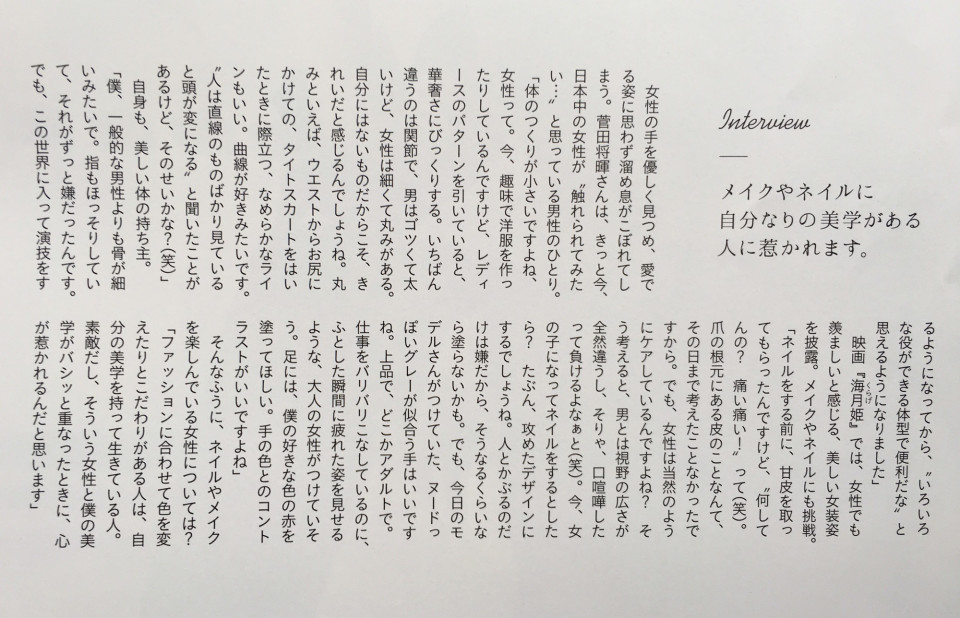 Interview
メイクやネイルに
自分なりの美学がある
人に惹かれます。
女性の手を優しく見つめ、愛で
る姿に思わず溜め息がこぼれてし
まう。菅田将暉さんは、きっと今、
日本中の女性が〝触れられてみた
い…〟と思っている男性のひとり。
「体のつくりが小さいですよね、
女性って。今、趣味で洋服を作っ
たりしているんですけど、レディ
ースのパターンを引いていると、
華奢さにびっくりする。いちばん
違うのは関節で、男はゴツくて太
いけど、女性は細くて丸みがある。
自分にはないものだからこそ、き
れいだと感じるんでしょうね。丸
みといえば、ウエストからお尻に
かけての、タイトスカートをはい
たときに際立つ、なめらかなライ
ンもいい。曲線が好きみたいです。
〝人は直線のものばかり見ている
と頭が変になる〟と聞いたことが
あるけど、そのせいかな？(笑)」
自身も、美しい体の持ち主。
「僕、一般的な男性よりも骨が細
いみたいで。指もほっそりしてい
て、それがずっと嫌だったんです。
でも、この世界に入って演技をす
るようになってから、〝いろいろ
な役ができる体型で便利だな〟と
思えるようになりました」
映画『海月姫』では、女性でも
羨ましいと感じる、美しい女装姿
を披露。メイクやネイルにも挑戦。
「ネイルをする前に、甘皮を取っ
てもらったんですけど、〝何して
んの？　痛い痛い！〟って(笑)。
爪の根元にある皮のことなんて、
その日まで考えたことなかったで
すから。でも、女性は当然のよう
にケアしているんですよね？　そ
う考えると、男とは視野の広さが
全然違うし、そりゃ、口喧嘩した
って負けるよなぁと(笑)。今、女
の子になってネイルをするとした
ら？　たぶん、攻めたデザインに
するでしょうね。人とかぶるのだ
けは嫌だから、そうなるくらいな
ら塗らないかも。でも、今日のモ
デルさんがつけていた、ヌードっ
ぽいグレーが似合う手はいいです
ね。上品で、どこかアダルトで。
仕事をバリバリこなしているのに、
ふとした瞬間に疲れた姿を見せる
ような、大人の女性がつけていそ
う。足には、僕の好きな色の赤を
塗ってほしい。手の色とのコント
ラストがいいですよね」
そんなふうに、ネイルやメイク
を楽しんでいる女性については？
「ファッションに合わせて色を変
えたりとこだわりがある人は、自
分の美学を持って生きている人。
素敵だし、そういう女性と僕の美
学がバシッと重なったときに、心
が惹かれるんだと思います」